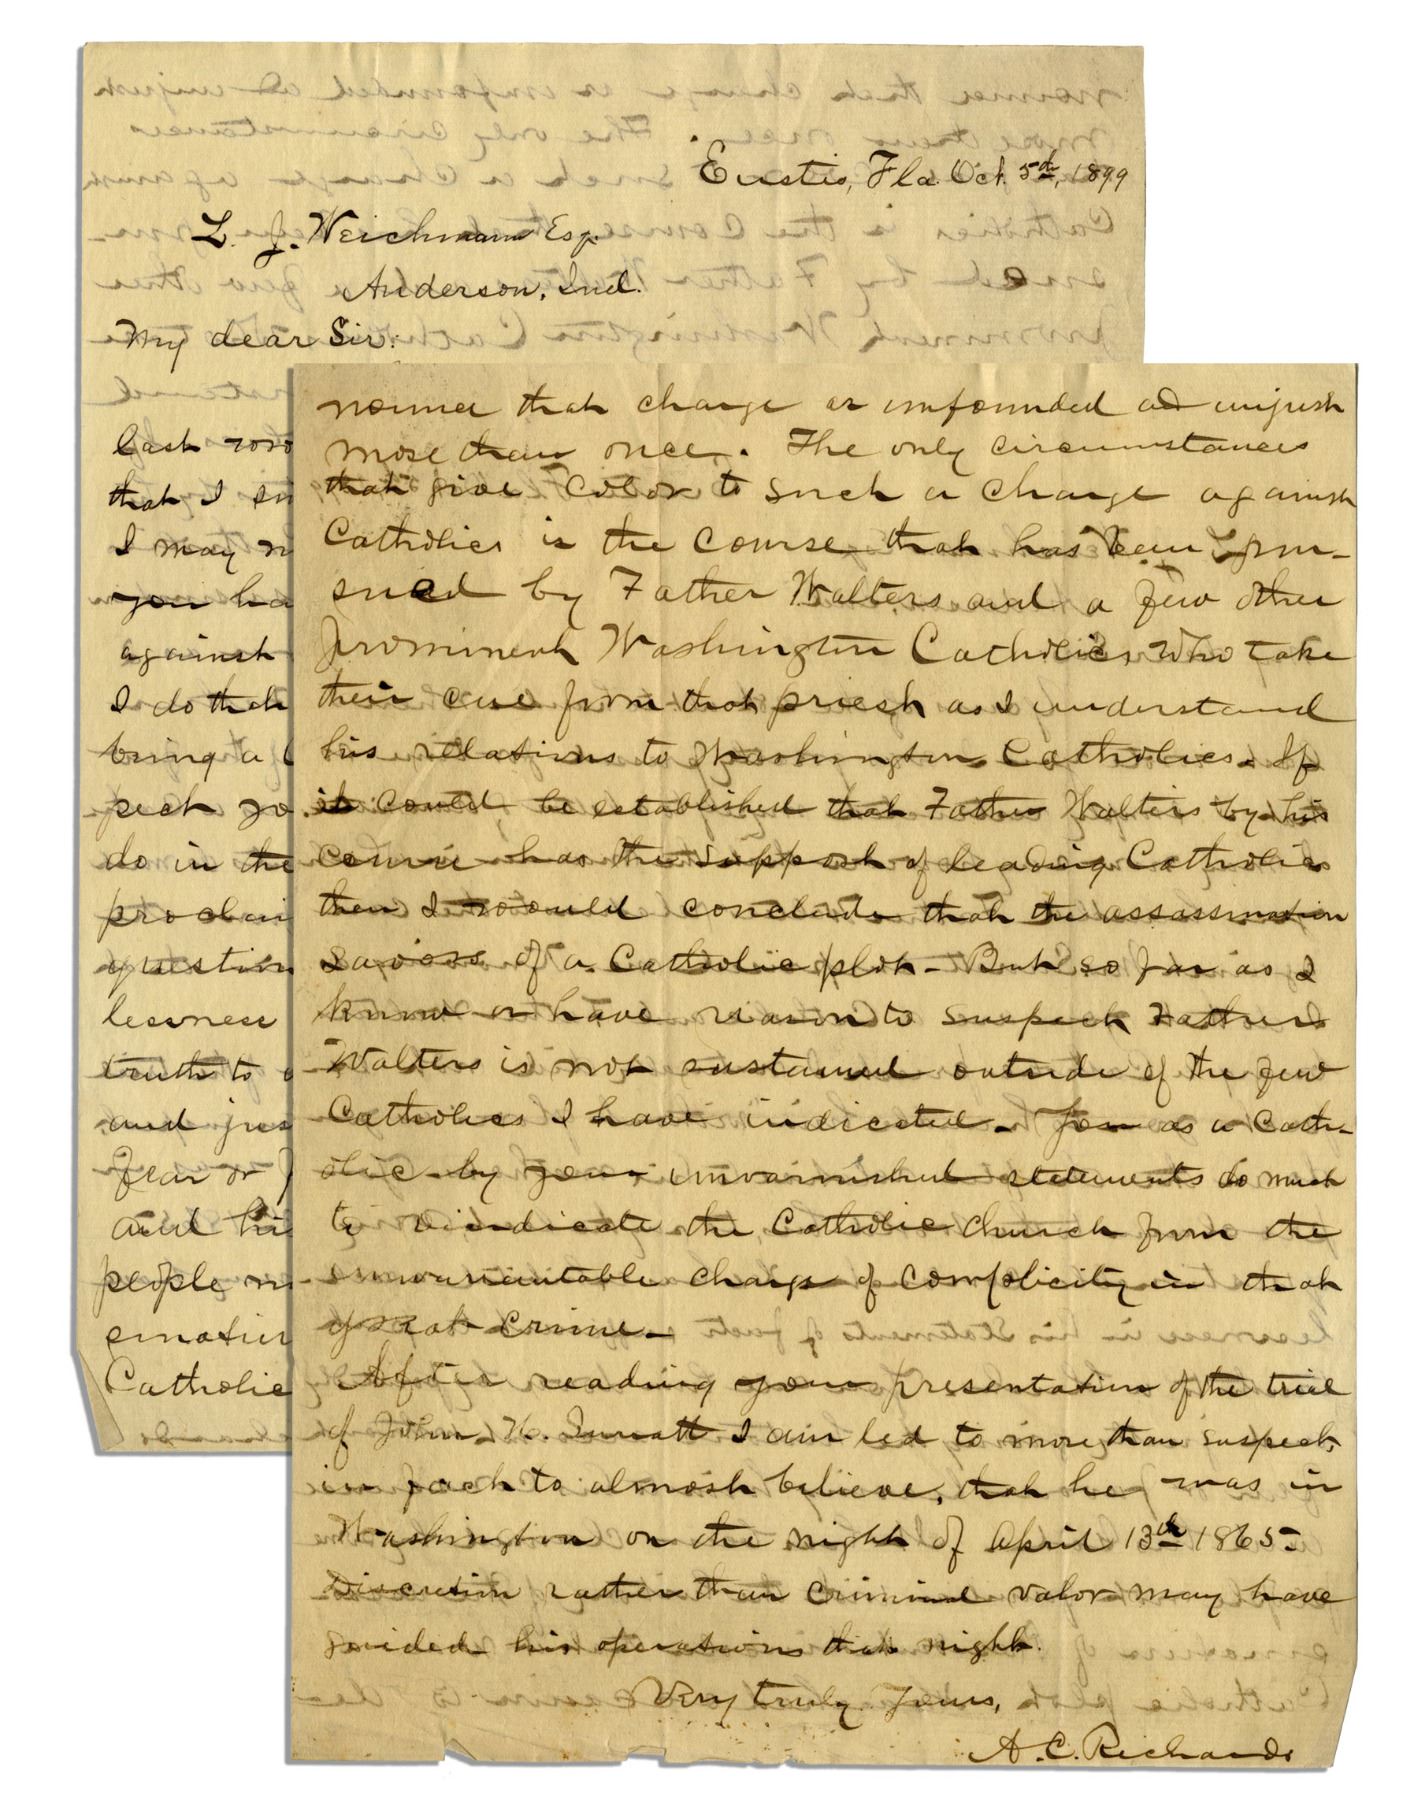 Eustis, Fla. Oct. 5th, 1899
L. J. Weichmann Esq.
Anderson, Ind.
My dear Sir:
last
that I
I may
you ha
against
I do that
bring a
pect yo
do in the
proclai
question
lessness
truth to
and jus
fear or
and his
people
Catholic
nounce that charge as unfounded and unjust
more than once. The only circumstances
that give color to such a charge against
Catholics is the course that has been pur-
sued by Father Walters and a few other
prominent Washington Catholics, who take
their cue from that priest as I understand
his relations to Washington Catholics. If
it could be established that Father Walters by his
course has the support of leading Catholics
then I would conclude that the assassination
savors of a Catholic plot - But so far as I
know or have reason to suspect Father
Walters is not sustained outside of the few
Catholics I have indicated. You as a Cath-
olic by your unvarnished statements do much
to vindicate the Catholic church from the
unwarrantable charge of complicity in that
great crime.
After reading your presentation of the trial
of John H. Surratt I am led to more than suspect,
in fact to almost believe, that he was in
Washington on the night of April 13th 1865 -
Discretion rather than criminal valor may have
guided his operations that night.
Very truly Yours,
A. C. Richards